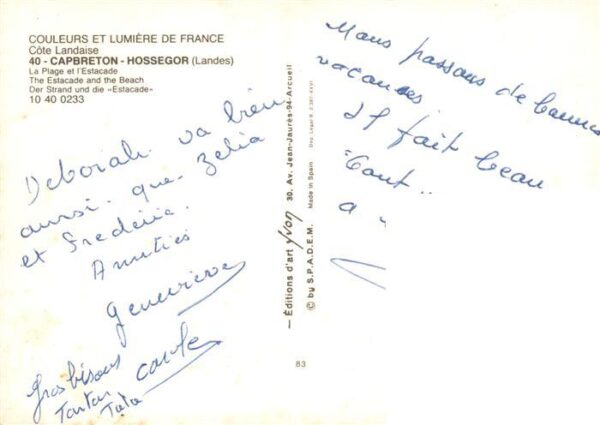 COULEURS ET LUMIÈRE DE FRANCE
Côte Landaise
40 - CAPBRETON - HOSSEGOR (Landes)
La Plage et l'Estacade
The Estacade and the Beach
Der Strand und die «Estacade»
10 40 0233
Deborah va bien
aussi que Zelia
et Frederic.
Amitiés
Geneviève
Gros bisous
Carole
Tata
— Éditions d'art YVON 30, Av. Jean-Jaurès-94-Arcueil
© by S.P.A.D.E.M. Made in Spain
83
Nous passons de bonnes
vacances
Il fait beau